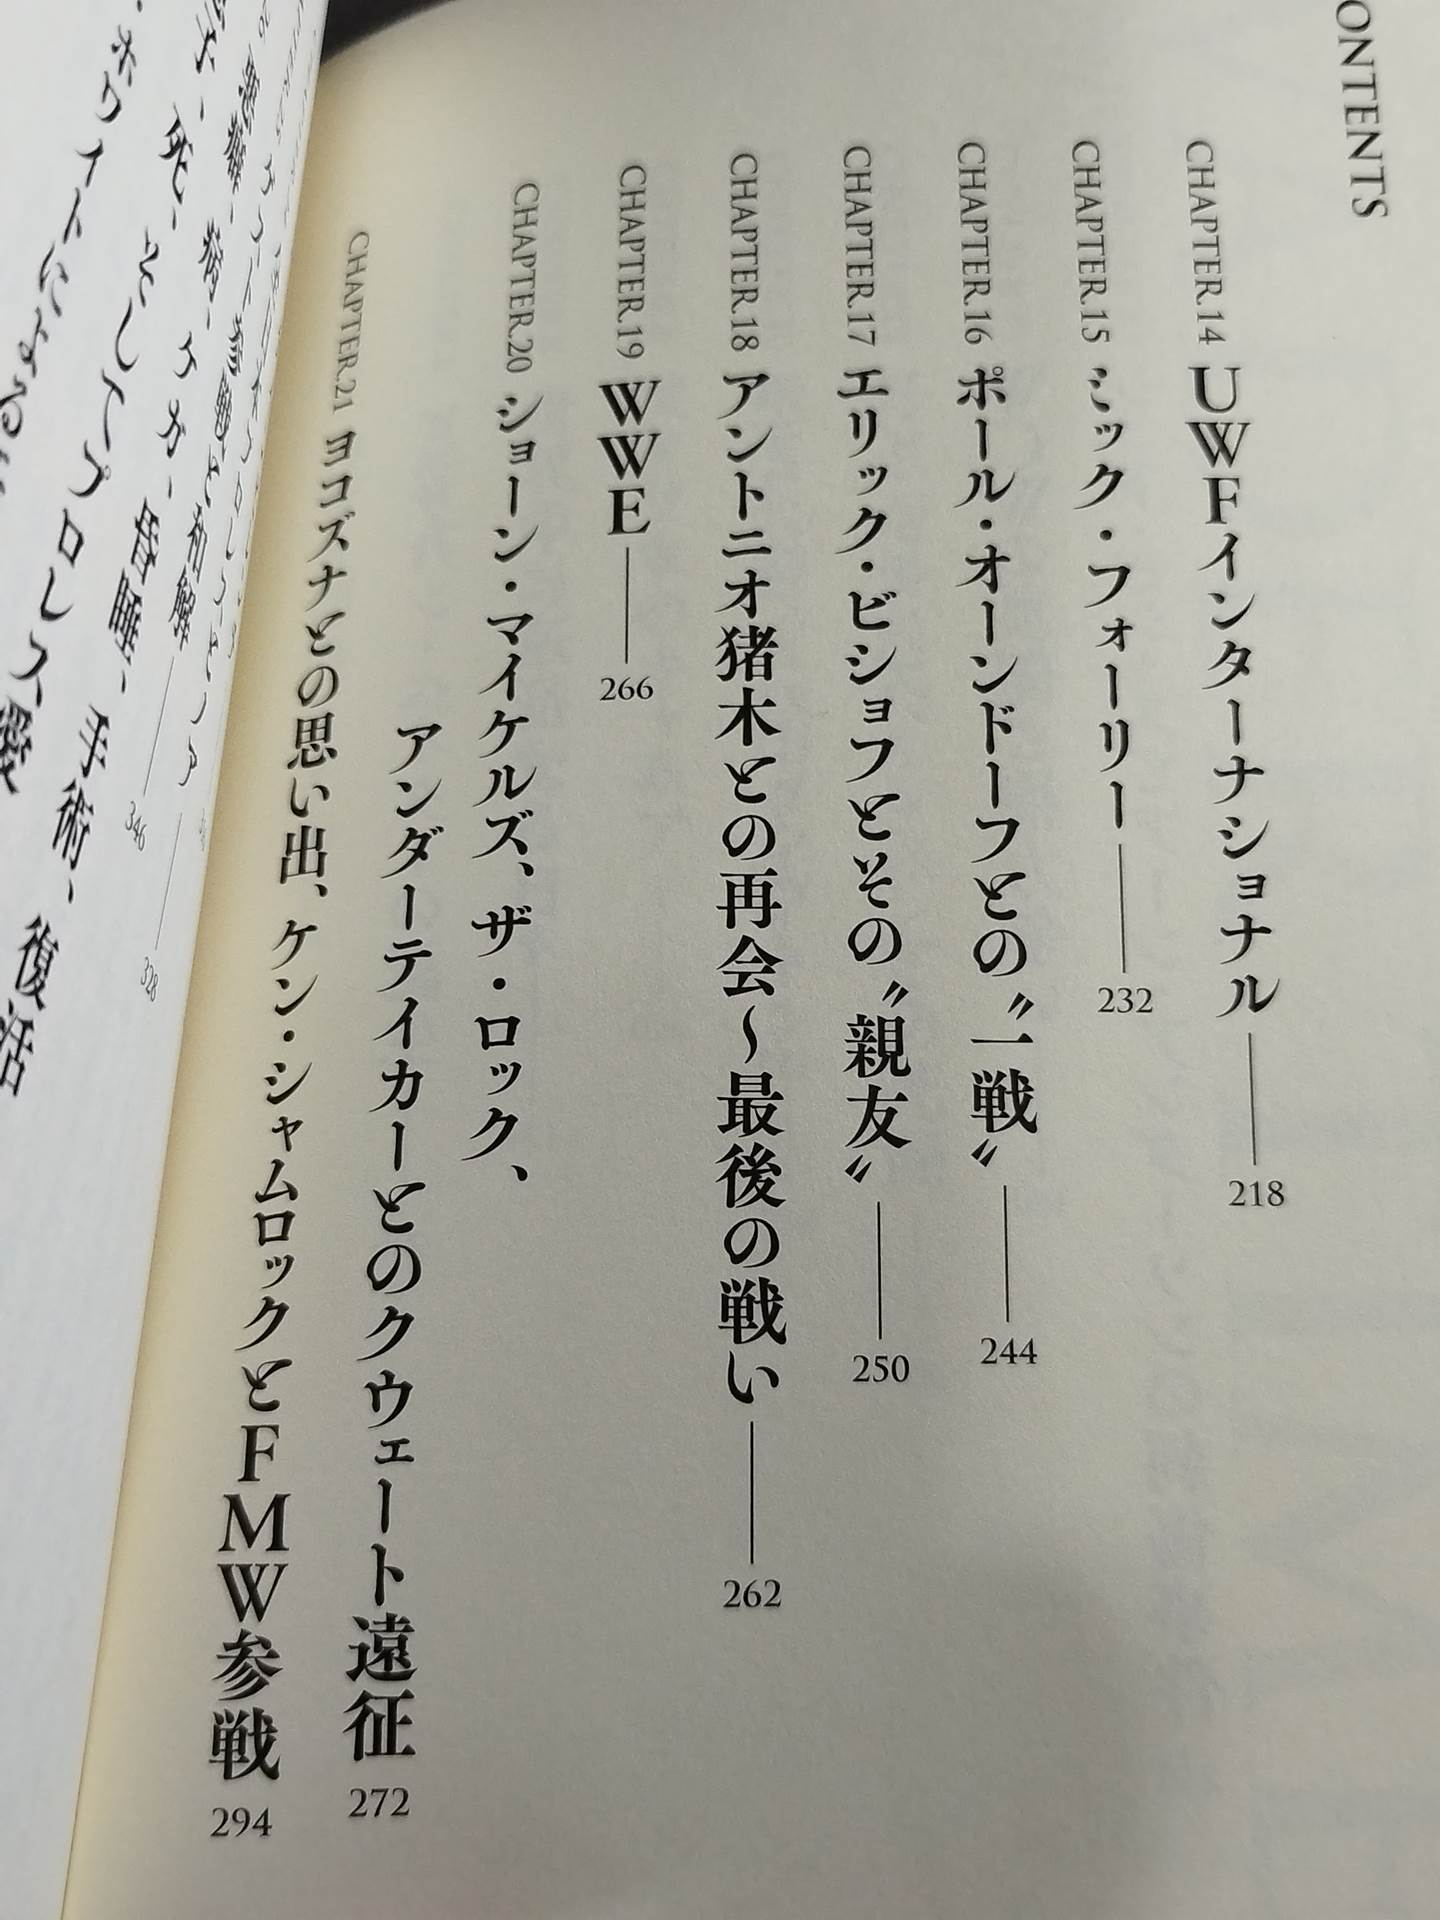 ONTENTS
CHAPTER.14 UWFインターナショナル 218
CHAPTER.15 ミック・フォーリー 232
CHAPTER.16 ポール・オーンドーフとの〝一戦〟 244
CHAPTER.17 エリック・ビショフとその〝親友〟 250
CHAPTER.18 アントニオ猪木との再会～最後の戦い 262
CHAPTER.19 WWE 266
CHAPTER.20 ショーン・マイケルズ、ザ・ロック、
アンダーテイカーとのクウェート遠征 272
CHAPTER.21 ヨコズナとの思い出、ケン・シャムロックとFMW参戦 294
328
悪癖、病、ケガ、昏睡、手術、復活
和解 346
死、そしてプロレス愛
ホワイトによる